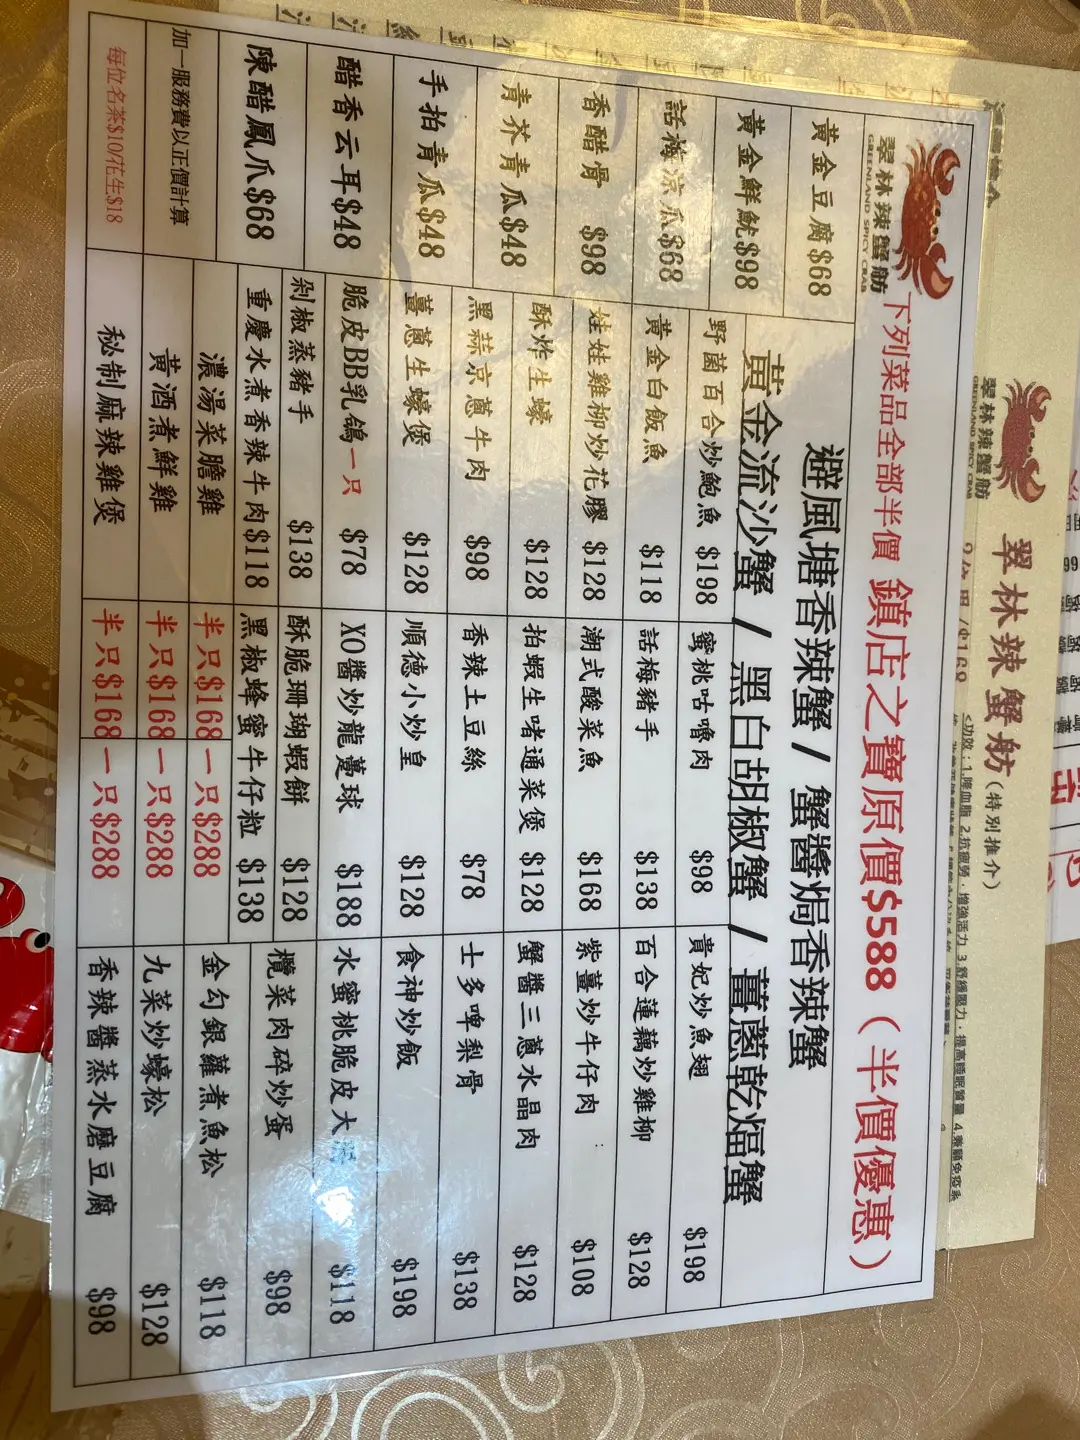 翠林辣蟹舫
GREENLAND SPICY CRAB
下列菜品全部半價 鎮店之寶原價$588（半價優惠）
避風塘香辣蟹 / 蟹醬焗香辣蟹
黃金流沙蟹 / 黑白胡椒蟹 / 薑蔥乾煏蟹
黃金豆腐$68
黃金鮮魷$98
話梅涼瓜$68
香醋骨 $98
青芥青瓜$48
手拍青瓜$48
醋香云耳$48
陳醋鳳爪$68
加一服務費以正價計算
每位名茶$10/花生$18
野菌百合炒鮑魚 $198
黃金白飯魚 $118
娃娃雞柳炒花膠 $128
酥炸生蠔 $128
黑蒜京蔥牛肉 $98
薑蔥生蠔煲 $128
脆皮BB乳鴿一只 $78
剁椒蒸豬手 $138
重慶水煮香辣牛肉$118
濃湯菜膽雞 半只$168 一只$288
黃酒煮鮮雞 半只$168 一只$288
秘制麻辣雞煲 半只$168 一只$288
蜜桃咕嚕肉 $98
話梅豬手 $138
潮式酸菜魚 $168
拍蝦生啫通菜煲 $128
香辣土豆絲 $78
順德小炒皇 $128
XO醬炒龍躉球 $188
酥脆珊瑚蝦餅 $128
黑椒蜂蜜牛仔粒 $138
貴妃炒魚翅 $198
百合蓮藕炒雞柳 $128
紫薑炒牛仔肉 $108
蟹醬三蔥水晶肉 $128
士多啤梨骨 $138
食神炒飯 $198
水蜜桃脆皮大 $118
欖菜肉碎炒蛋 $98
金勾銀蘿煮魚松 $118
九菜炒蠔松 $128
香辣醬蒸水磨豆腐 $98
翠林辣蟹舫
GREENLAND SPICY CRAB
翠林辣蟹舫(特別推介)
<功效：1.降血脂 2.抗疲勞，增強活力 3.舒緩壓力，提高睡眠質量 4.兼顧免疫系